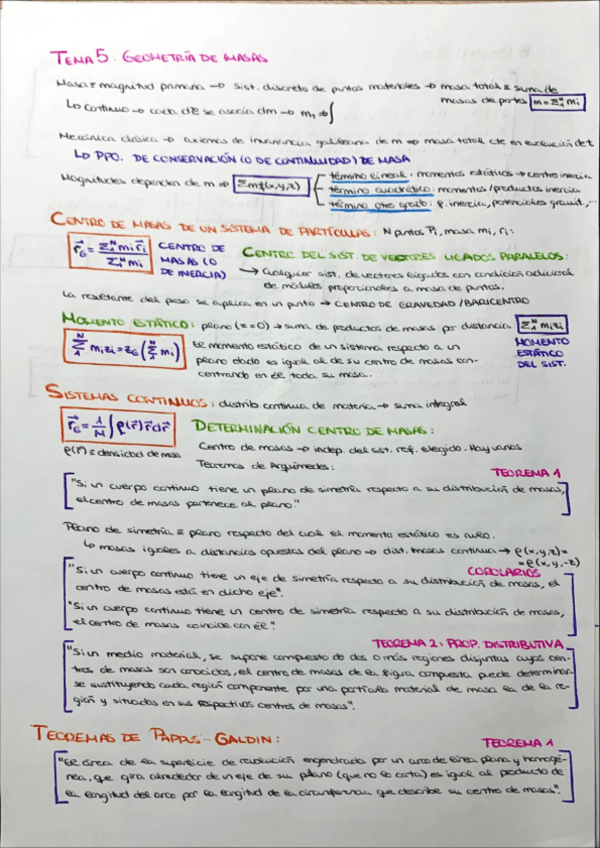 TEMA 5. GEOMETRÍA DE MASAS
Masa ≡ magnitud primaria → sist. discreto de puntos materiales → masa total ≡ suma de
masas de partes m = Σ₁ᴺ mᵢ
↳ Continuo → cada dτ se asocia dm → m₁ → ∫
Mecánica clásica → axiomas de invariancia galileana de m → masa total cte en evolución de t
↳ PPO. DE CONSERVACIÓN (O DE CONTINUIDAD) DE MASA
Magnitudes dependen de m → Σmφ(x,y,z)
término lineal: momentos estáticos → centro inercia
término cuadrático: momentos/productos inercia
término otro grado: p. inercia, potenciales gravit,...
CENTRO DE MASAS DE UN SISTEMA DE PARTÍCULAS: N puntos Pᵢ, masa mᵢ, rᵢ:
r⃗_G = Σ₁ᴺ mᵢ r⃗ᵢ / Σ₁ᴺ mᵢ
CENTRO DE MASAS (O DE INERCIA)
CENTRO DEL SIST. DE VECTORES LIGADOS PARALELOS:
→ Cualquier sist. de vectores ligados con condición adicional
de módulos proporcionales a masa de puntos.
La resultante del peso se aplica en un punto → CENTRO DE GRAVEDAD/BARICENTRO
MOMENTO ESTÁTICO: plano (z=0) → suma de productos de masas por distancia Σ₁ᴺ mᵢzᵢ
Σ₁ᴺ mᵢzᵢ = z_G (Σ₁ᴺ mᵢ)
El momento estático de un sistema respecto a un
plano dado es igual al de su centro de masas con-
centrando en él toda su masa.
MOMENTO ESTÁTICO DEL SIST.
SISTEMAS CONTINUOS: distrib. continua de materia → suma integral
r⃗_G = 1/M ∫ ρ(r⃗) r⃗ dr⃗
DETERMINACIÓN CENTRO DE MASAS:
ρ(r⃗) ≡ densidad de masa
Centro de masas → indep. del sist. ref. elegido. Hay varios
Teoremas de Arquímedes:
TEOREMA 1
"Si un cuerpo continuo tiene un plano de simetría respecto a su distribución de masas,
el centro de masas pertenece al plano."
Plano de simetría ≡ plano respecto del cual el momento estático es nulo.
↳ masas iguales a distancias opuestas del plano → dist. masas continua → ρ(x,y,z) =
= ρ(x,y,-z)
COROLARIOS
"Si un cuerpo continuo tiene un eje de simetría respecto a su distribución de masas, el
centro de masas está en dicho eje".
"Si un cuerpo continuo tiene un centro de simetría respecto a su distribución de masas,
el centro de masas coincide con él."
TEOREMA 2: PROP. DISTRIBUTIVA
"Si un medio material, se supone compuesto de dos o más regiones disjuntas cuyos cen-
tros de masas son conocidos, el centro de masas de la figura compuesta puede determinar-
se sustituyendo cada región componente por una partícula material de masa la de la re-
gión y situadas en sus respectivos centros de masas".
TEOREMAS DE PAPPUS-GALDIN:
TEOREMA 1
"El área de la superficie de revolución engendrada por un arco de línea plana y homogé-
nea, que gira alrededor de un eje de su plano (que no la corta) es igual al producto de
la longitud del arco por la longitud de la circunferencia que describe su centro de masas".